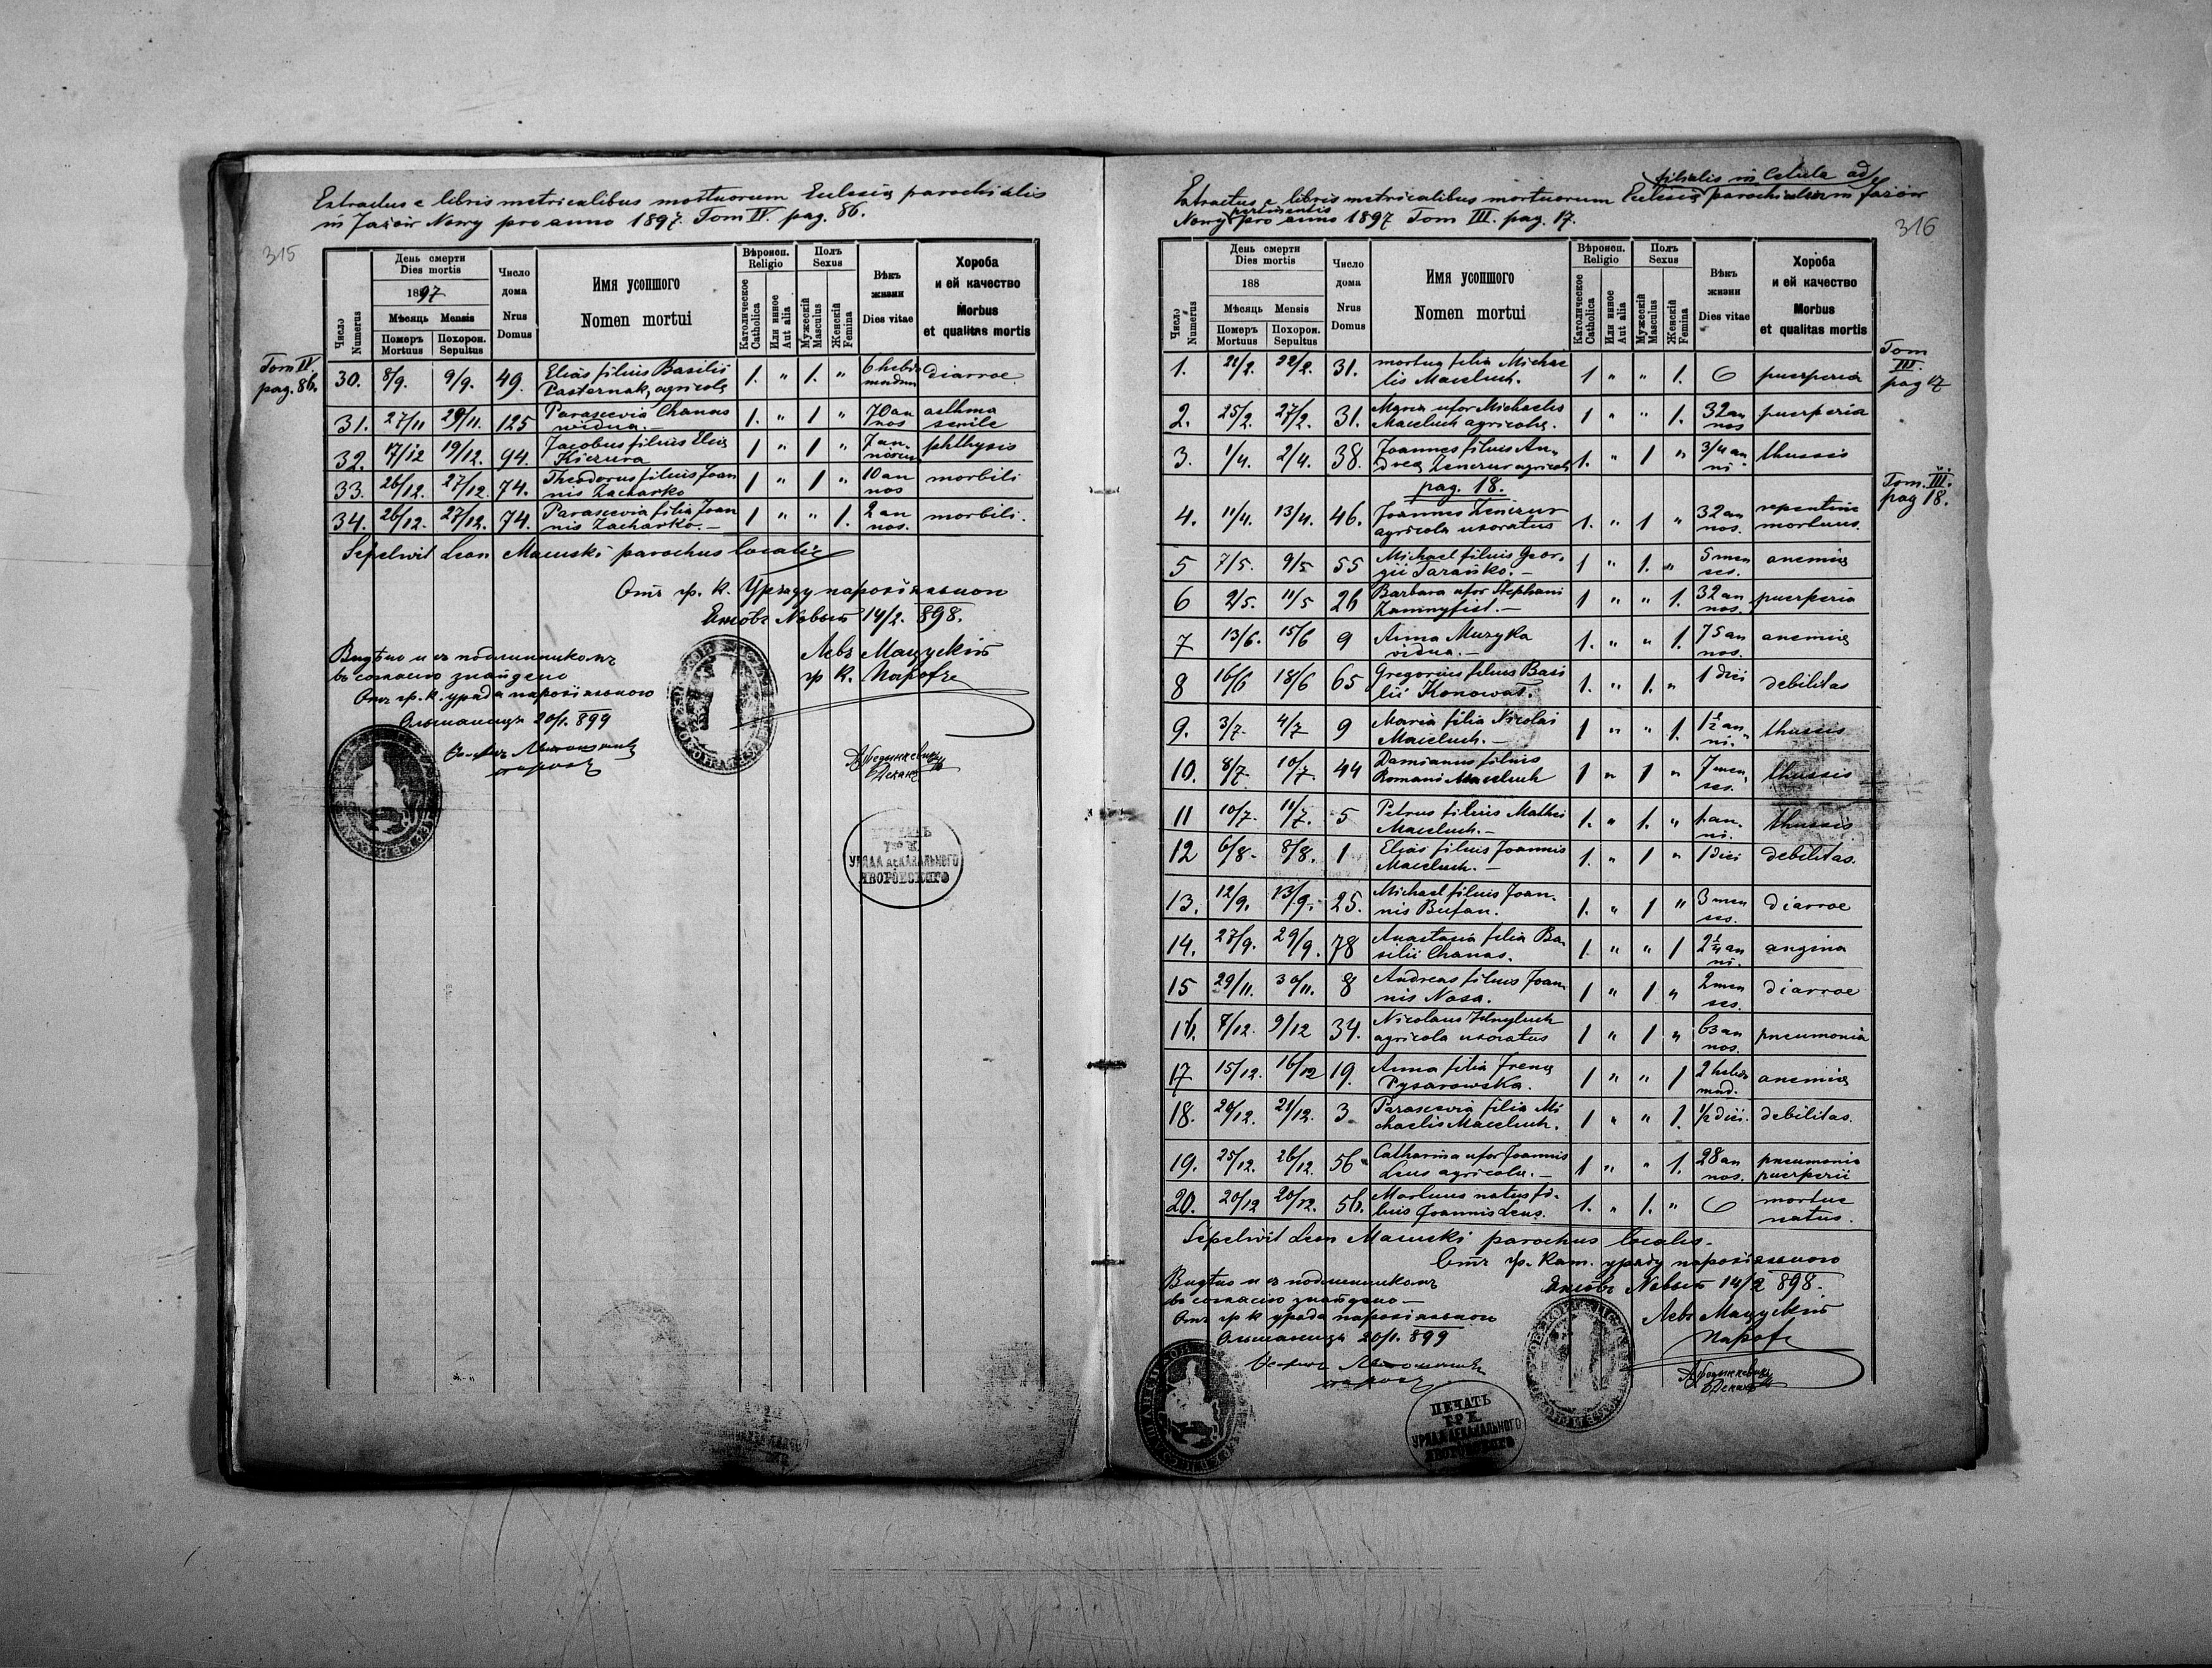 Extractus e libris metricalibus mortuorum Eclesia parochialis
in Jazów Nowy pro anno 1897. Tom IV. pag. 86.
315
Число Numerus
День смерти
Dies mortis
1897
Мѣсяць Mensis
Померъ Mortuus
Похорон. Sepultus
Число дома
Nrus Domus
Имя усопшого
Nomen mortui
Вѣроисп.
Religio
Католическое Catholica
Или инное Aut alia
Полъ
Sexus
Мужескій Masculus
Женскій Femina
Вѣкъ жизни
Dies vitae
Хороба
и ей качество
Morbus
et qualitas mortis
Tom IV.
pag. 86.
30. 8/9. 9/9. 49. Elias filius Basilii Pasternak, agricola 1. " 1. " 6 hebdomadum diarroe.
31. 27/11 29/11. 125 Parascevia Chanas vidua.— 1. " 1 " 70 an nos asthma senile
32. 17/12 19/12. 94. Jacobus filius Elia Kiczura 1 " 1 " 7 an. norum phthysis
33. 26/12. 27/12. 74. Theodorus filius Joan nis Zacharko 1 " 1 " 10 an nos morbili
34. 26/12. 27/12. 74. Parascevia filia Joan nis Zacharko.— 1 " " 1. 2 an nos. morbili.
Sepelivit Leon Macuski parochus localis
Отъ гр. к. Уряду парохіяльного
Язôвъ Новый 14/2. 898.
Левъ Мацускій
гр. к. Парохъ
Видѣно и съ подлинникомъ
въ согласію знайдено
Отъ гр. к. уряда парохіяльного
Ольшаница 20/1. 899
парохъ
Деканъ
ПЕЧАТЬ
Гр. К.
УРЯДА ДЕКАНАЛЬНОГО
ЯВОРÔВСКОГО
filialis in Cetula ad
Extractus e libris metricalibus mortuorum Eclesia parochialem in Jazów
Nowy pertinentis pro anno 1897 Tom III. pag. 17.
316
Число Numerus
День смерти
Dies mortis
188
Мѣсяць Mensis
Померъ Mortuus
Похорон. Sepultus
Число дома
Nrus Domus
Имя усопшого
Nomen mortui
Вѣроисп.
Religio
Католическое Catholica
Или инное Aut alia
Полъ
Sexus
Мужескій Masculus
Женскій Femina
Вѣкъ жизни
Dies vitae
Хороба
и ей качество
Morbus
et qualitas mortis
Tom
III.
pag 17
1. 21/2. 22/2. 31. mortua filia Michae lis Maceluch. 1 " " 1. 0 puerperia
2. 25/2. 27/2. 31. Maria uxor Michaelis Maceluch agricola. 1 " " 1. 32 an nos puerperia
3. 1/4. 2/4. 38. Joannes filius An- drea agricola 1. " 1 " 3/4 an ni thussis
pag. 18.
Tom. III.
pag 18.
4. 11/4. 13/4. 46. Joannes agricola uxoratus 1. " 1 " 32 an nos. repentine mortuus.
5 7/5. 9/5 55 Michael filius Geor- gii Tarańko.— 1 " 1. " 5 men ses. anemia
6 2/5. 11/5 26 Barbara uxor Stephani 1 " " 1. 32 an nos. puerperia
7 13/6. 15/6 9 Anna Muzyka vidua.— 1. " " 1. 75 an nos. anemia
8 16/6 18/6 65 Gregorius filius Basi lii Konował. 1. " 1. " 1 diei debilitas
9. 3/7. 4/7 9 Maria filia Nicolai Maceluch.— 1 " " 1. 1 1/2 an. ni. thussis
10. 8/7. 10/7 44 Damianus filius Romani Maceluch 1 " 1 " 7 men, ses. thussis
11 10/7. 11/7. 5 Petrus filius Mathei Maceluch.— 1. " 1. " 1 an. ni. thussis
12 6/8. 8/8. 1 Elias filius Joannis Maceluch.— 1. " 1 " 1 diei debilitas.
13. 12/9. 13/9. 25. Michael filius Joan- nis Bufan. 1. " 1 " 3 men ses. diarroe
14. 27/9. 29/9. 78 Anastasia filia Ba- silii Chanas. 1. " " 1 2 1/4 an ni. angina
15 29/11. 30/11. 8 Andreas filius Joan- nis Nosa. 1 " 1 " 2 men ses. diarroe
16. 7/12. 9/12 34. Nicolaus agricola uxoratus 1 " 1 " 63 an nos. pneumonia
17 15/12. 16/12 19. Anna filia Irena Pysarowska. 1 " " 1 2 hebdo mad. anemia
18. 20/12. 21/12. 3 Parascevia filia Mi chaelis Maceluch. 1 " " 1. 1/2 diei. debilitas.
19. 25/12. 26/12. 56 Catharina uxor Joannis Leus agricola.— 1 " " 1. 28 an nos. pneumonia puerperii
20. 20/12 20/12. 56. Mortuus natus fi- lius Joannis Leus. 1. " 1. " 0 mortue natus.
Sepelivit Leon Macuski parochus localis.
Отъ гр. кат. уряду парохіяльного
Язôвъ Новый 14/2 898.
Левъ Мацускій
Парохъ
Видѣно и съ подлинникомъ
въ согласію знайдено—
Отъ гр. к. уряда парохіяльного
Ольшаница 20/1. 899
парохъ
Деканъ
ПЕЧАТЬ
ГР. К.
УРЯДА ДЕКАНАЛЬНОГО
ЯВОРÔВСКОГО